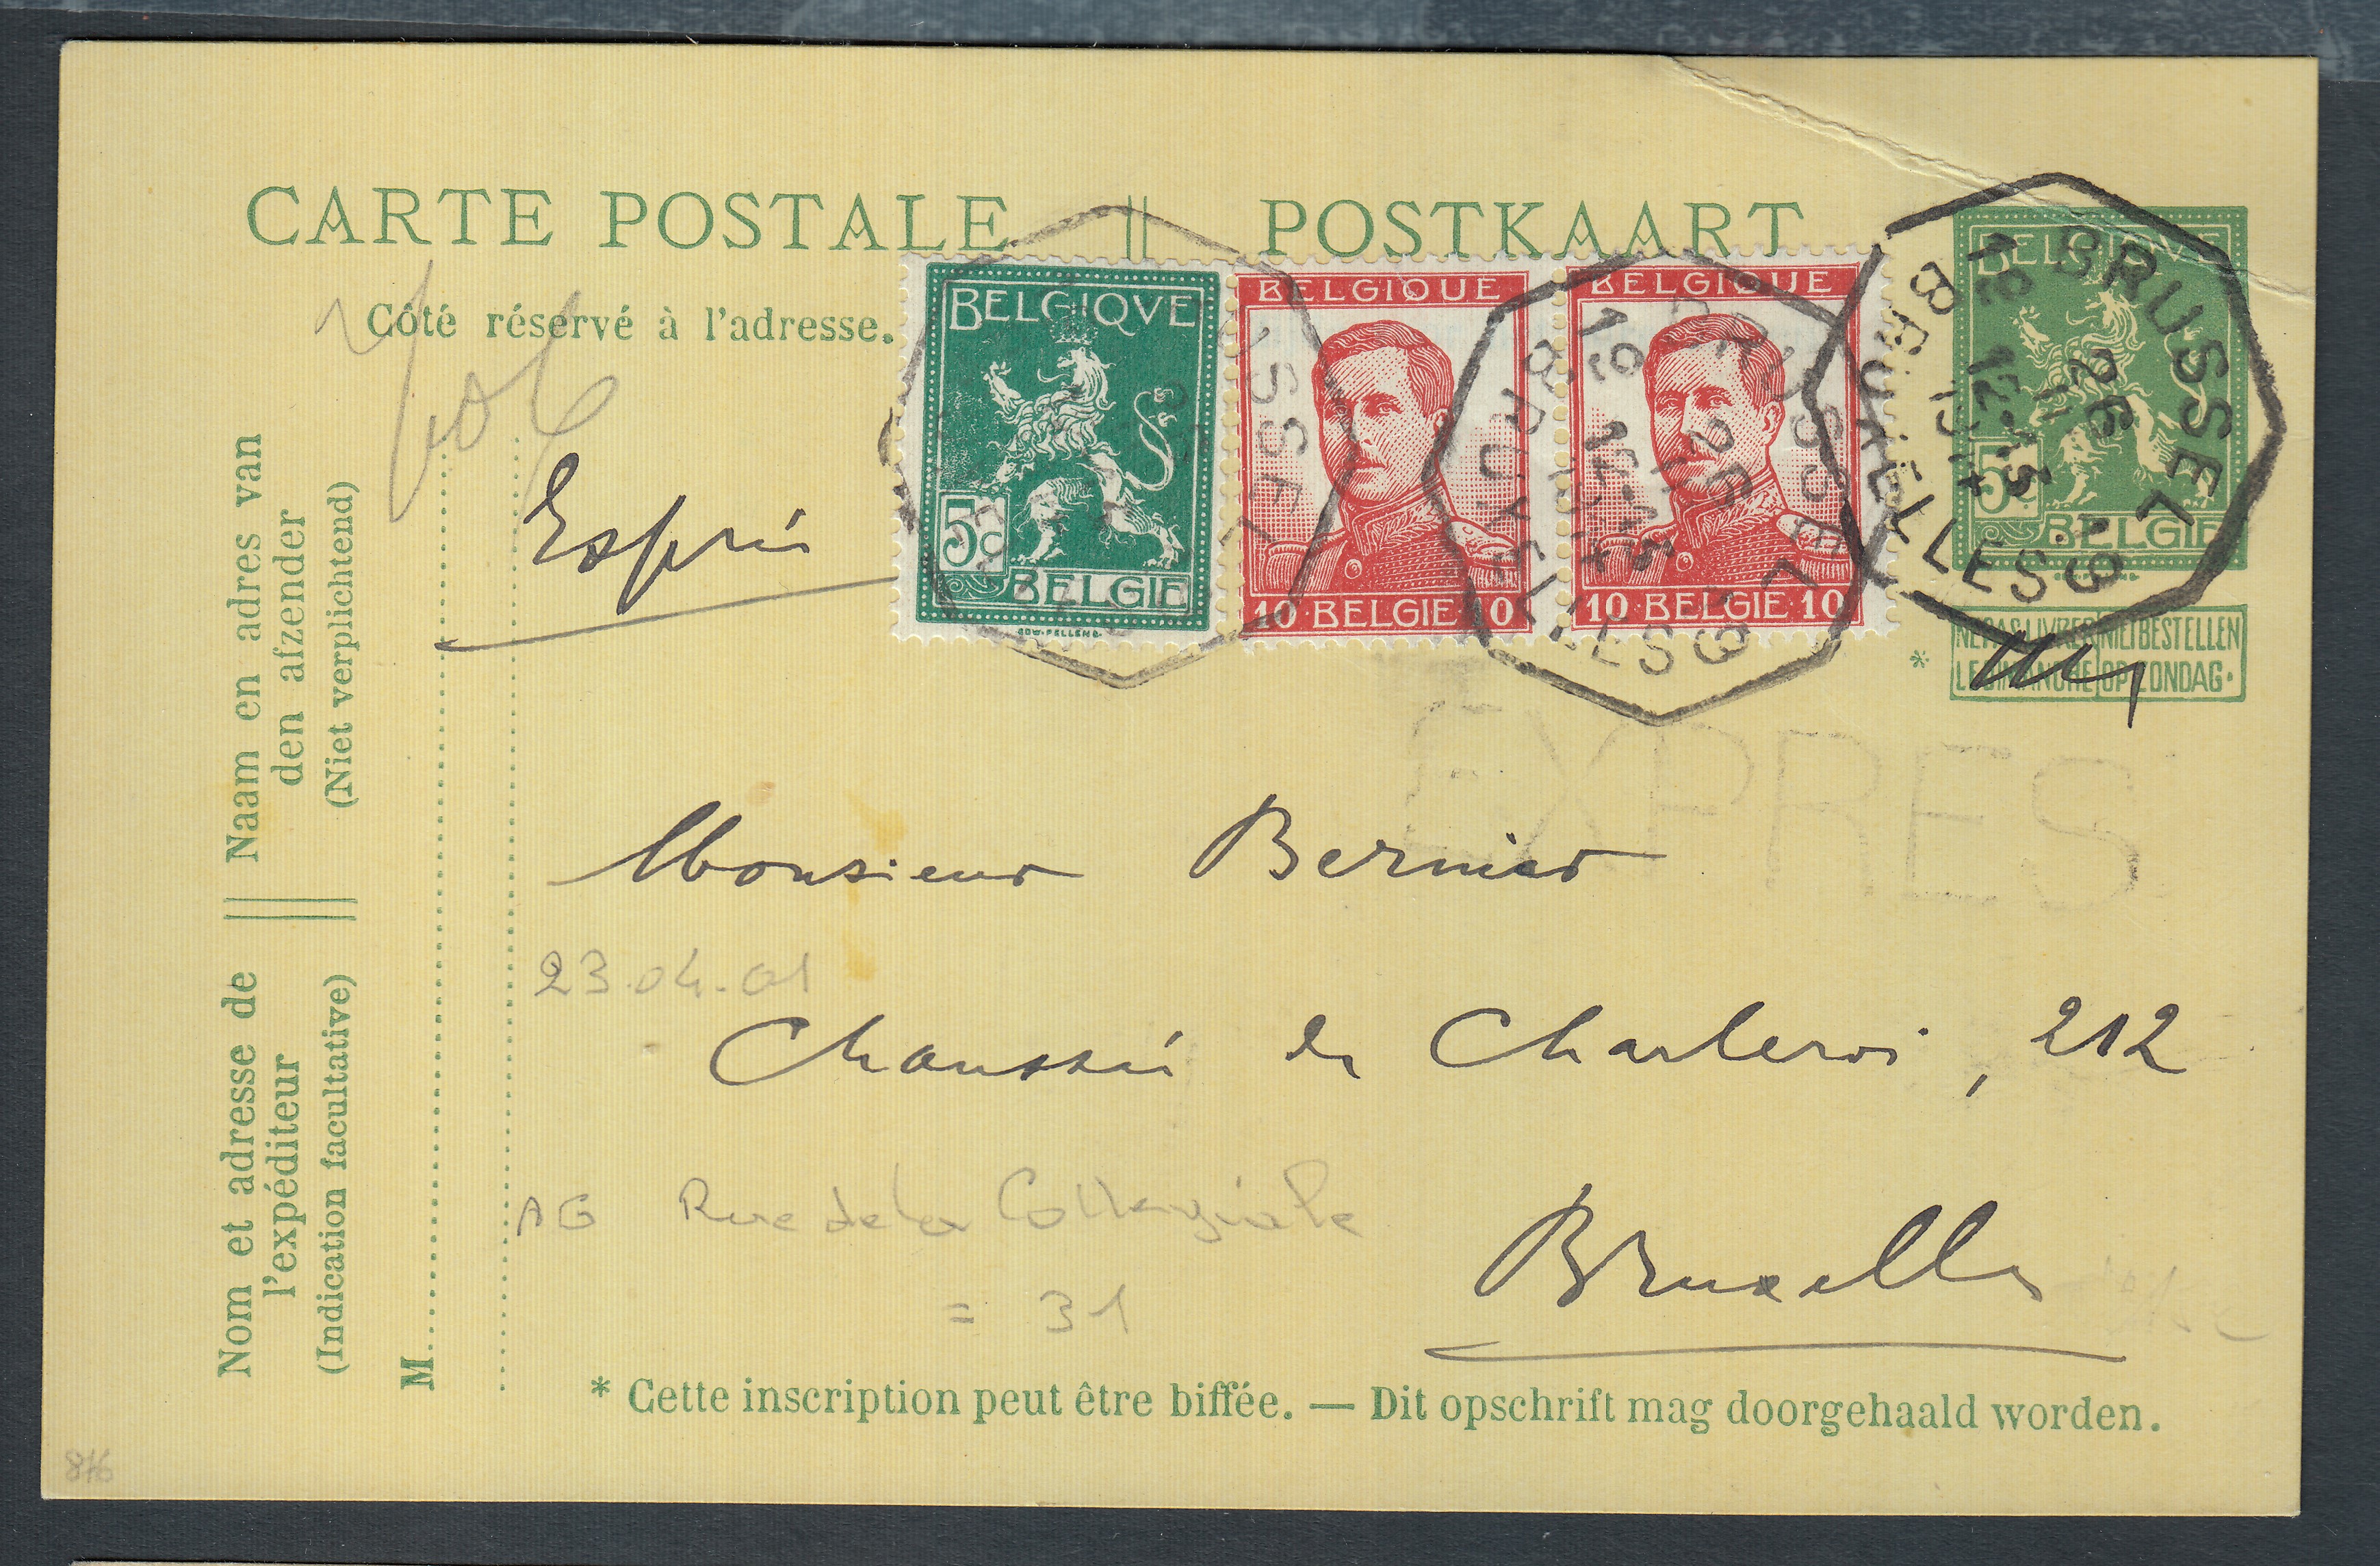 CARTE POSTALE || POSTKAART
Côté réservé à l'adresse.
BELGIQVE
5c
BELGIE
BELGIQUE
10·BELGIE 10
BELGIQUE
10·BELGIE 10
BELGIQVE
5
BELGIE
BRUSSEL
26
12-13
BRUXELLES
9
BRUSSEL
26
12-13
BRUXELLES
9
NE PAS LIVRER NIET BESTELLEN
* LE DIMANCHE OP ZONDAG.
Exprès
EXPRES
Monsieur Bernier
23.04.01
Chaussée de Charleroi, 212
AG Rue de la Collegiale
= 31
Bruxelles
Naam en adres van
den afzender
(Niet verplichtend)
Nom et adresse de
l'expéditeur
(Indication facultative)
M
* Cette inscription peut être biffée. — Dit opschrift mag doorgehaald worden.